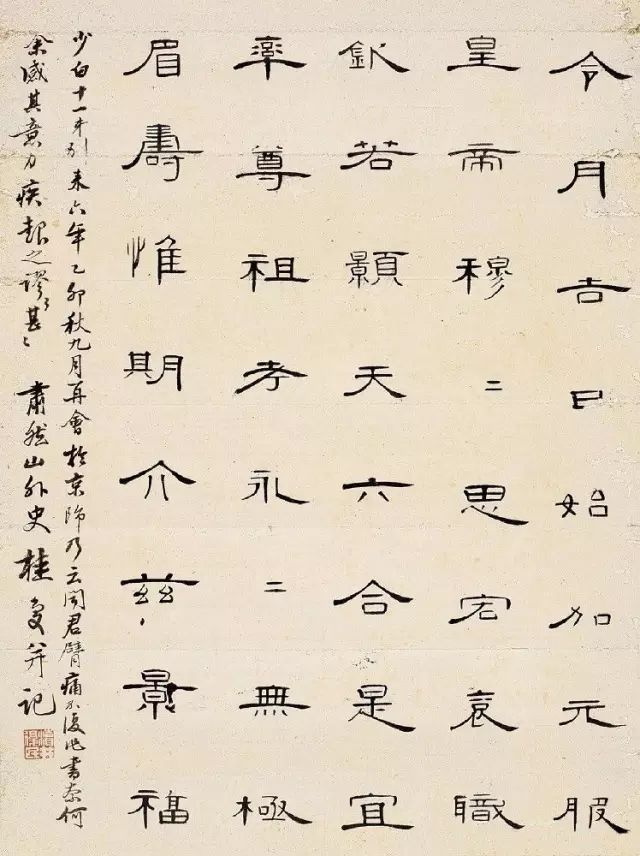 令月吉日始加元服
皇帝穆二思宏衮職
欽若顥天六合是宜
率尊祖考永二無極
眉壽惟期介茲景福
少白十一弟別來六年乙卯秋九月再會於京師乃云聞君臂痛不復作書奈何
余感其意力疾報之謬々甚々 肅然山外史桂复并記